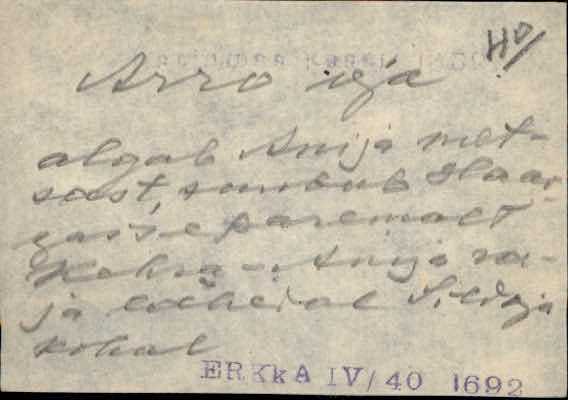 HJ
Arro oja
algab Anija met-
sast, suubub Haar-
jasse paremalt
Kehra - Anija ra-
ja lähedal Sildoja
kohal
ERKkA IV/40 1692